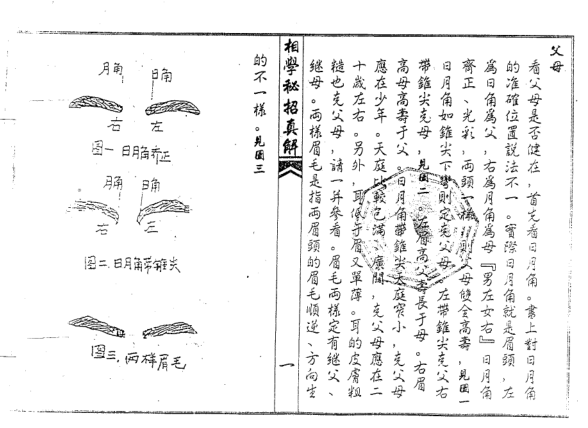 父母
看父母是否健在，首先看日月角。書上對日月角
的准確位置說法不一。實際日月角就是眉頭，左
為日角為父，右為月角為母『男左女右』日月角
齊正、光彩，兩頭一樣，則父母雙全高壽，見圖一
日月角如錐尖下彎則定克父母。左帶錐尖克父右
帶錐尖克母，見圖二。左眉高父壽長于母。右眉
高母高壽于父。日月角帶錐尖天庭窄小，克父母
應在少年。天庭比較飽滿、廣闊，克父母應在二
十歲左右。另外，耳低于眉又單薄。耳的皮膚粗
糙也克父母，請一并參看。眉毛兩樣定有繼父、
繼母。兩樣眉毛是指兩眉頭的眉毛順逆、方向生
相學秘招真解
一
的不一樣。見圖三
月角 日角
右 左
图一 日月角齐正
月角 日角
右
图二、日月角带锥尖
图三、两样眉毛